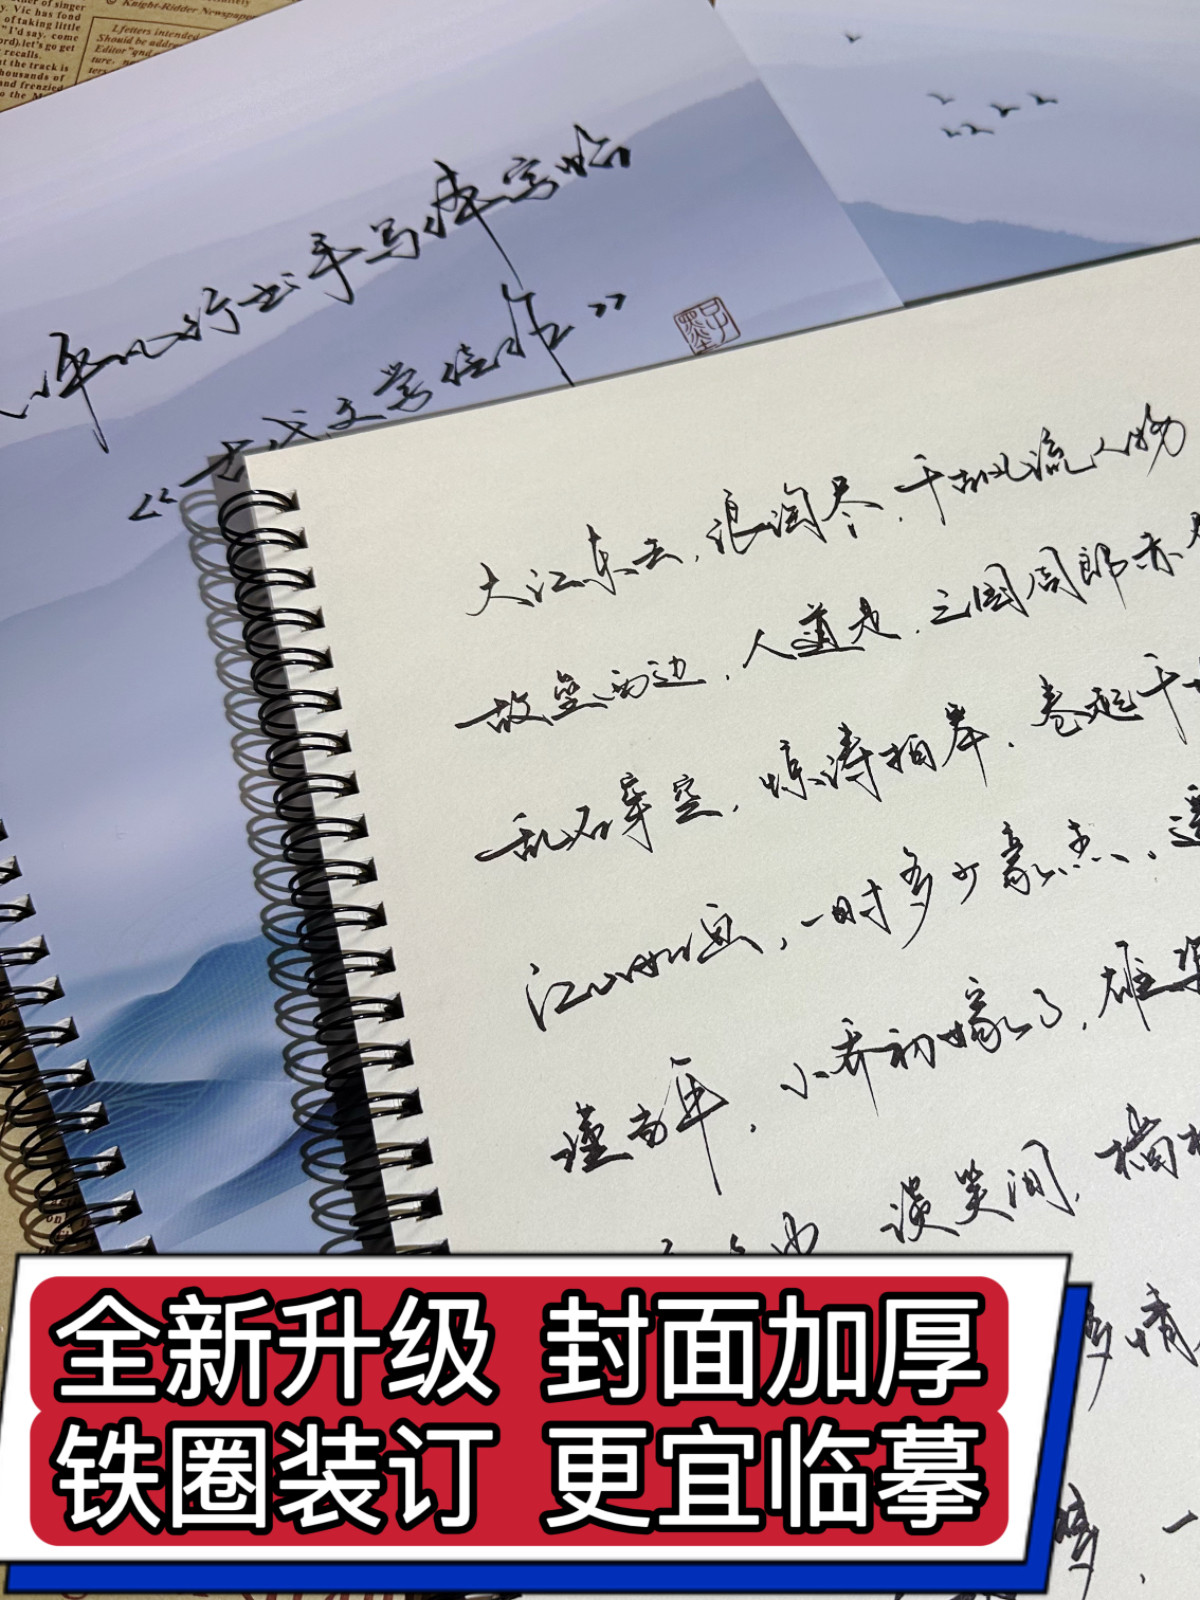 er of singer
y. Vic has fond
of taking little
"I'd say, come
ord), let's go get
recalls.
at the track is
housands of
and frenzied
to the M
© Knight-Ridder Newspaper
Letters intended
Should be addre
Editor"and
ture,
行书手写体字帖
《古代文学佳作》
大江东去，浪淘尽，千古风流人物
故垒西边，人道是，三国周郎赤
乱石穿空，惊涛拍岸，卷起千
江山如画，一时多少豪杰，遥
瑾当年，小乔初嫁了，雄
谈笑间，樯
多情
全新升级 封面加厚
铁圈装订 更宜临摹